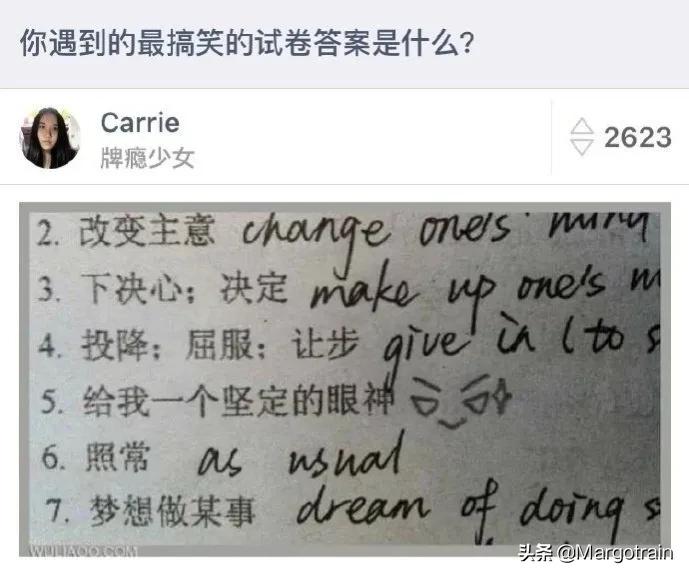 你遇到的最搞笑的试卷答案是什么?
Carrie
牌瘾少女
2623
2. 改变主意 change one's mind
3. 下决心；决定 make up one's m
4. 投降；屈服；让步 give in (to s
5. 给我一个坚定的眼神
6. 照常 as usual
7. 梦想做某事 dream of doing s
WULIAOO.COM
头条 @Margotrain